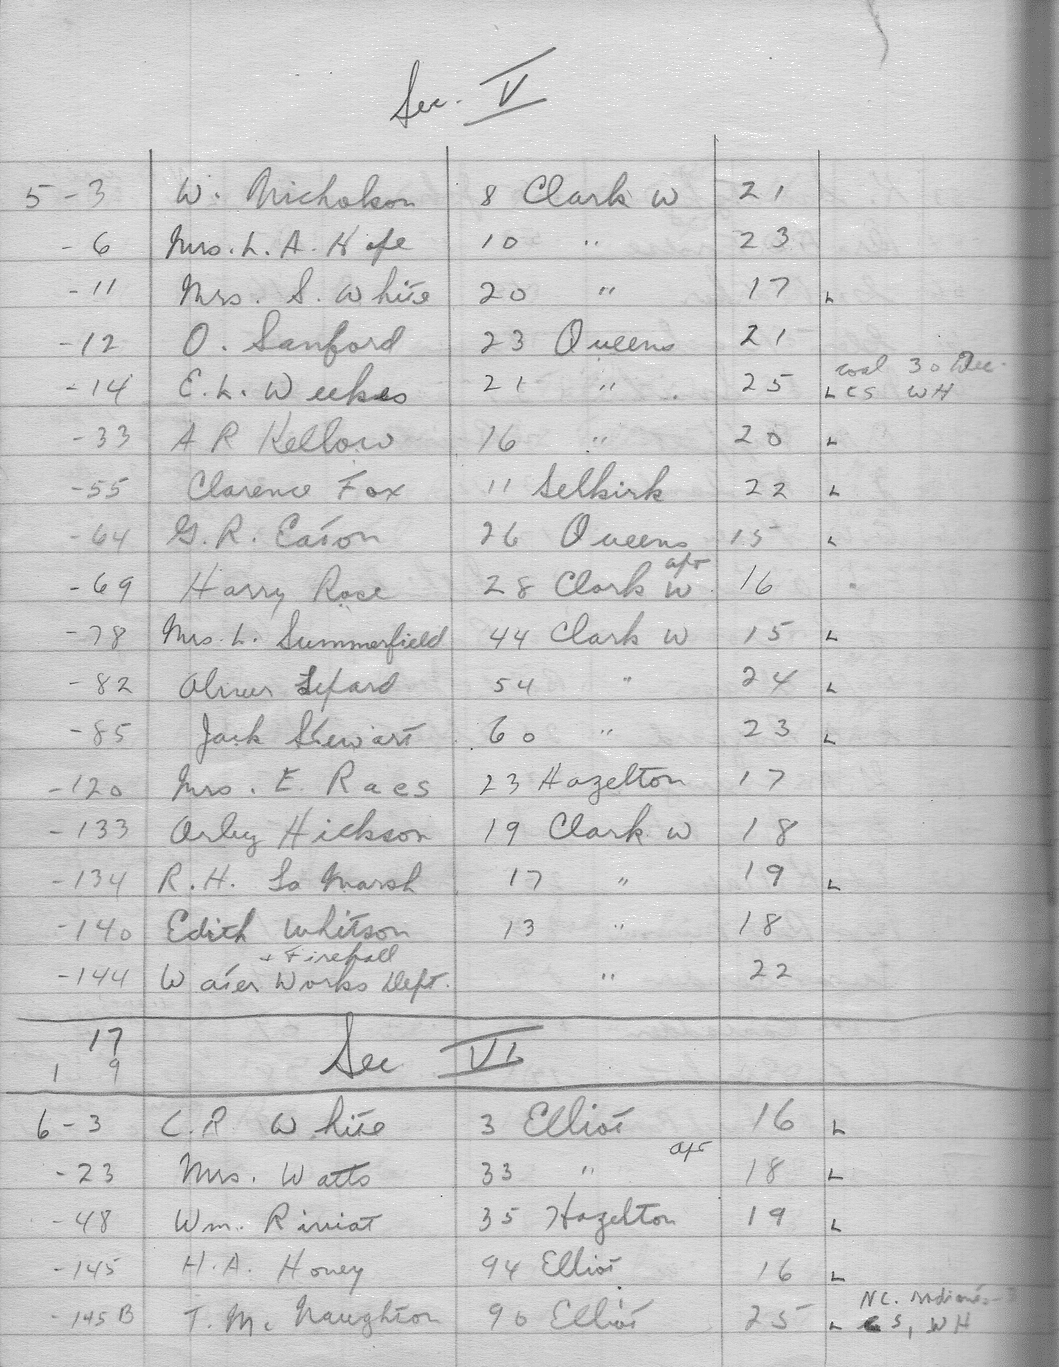 Sec. V
5-3 W. Nicholson 8 Clark W 21
-6 Mrs. L. A. Hope 10 " 23
-11 Mrs. S. White 20 " 17 L
-12 O. Sanford 23 Queens 21
-14 E. L. Weekes 21 " 25 L coal 30 Dec.
CS WH
-33 A R Kellow 16 " 20 L
-55 Clarence Fox 11 Selkirk 22 L
-64 G. R. Eaton 26 Queens 15 L
-69 Harry Rose 28 Clark W apt 16
-78 Mrs. L. Summerfield 44 Clark W 15 L
-82 Lepard 54 " 24 L
-85 Jack Stewart 60 " 23 L
-120 Mrs. E. Raes 23 Hazelton 17
-133 Orley Hickson 19 Clark W 18
-134 R. H. La Marsh 17 " 19 L
-140 Edith Whitson 13 " 18
+ Firehall
-144 Water Works Dept. " 22
17
1 9
Sec VI
6-3 C. R. White 3 Elliot 16 L
-23 Mrs. Watts 33 " apt 18 L
-48 Wm. 35 Hazelton 19 L
-145 H. A. Honey 94 Elliot 16 L
N.C.
-145B T. McNaughton 96 Elliot 25 L CS, WH